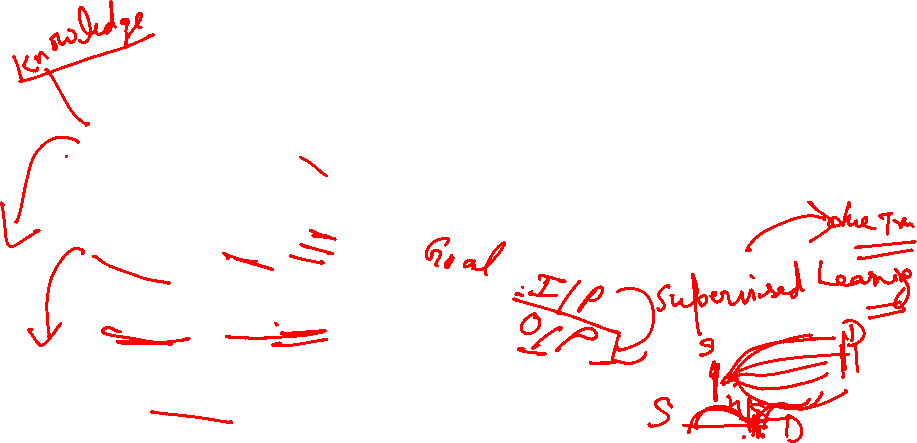 Knowledge
Goal
I/P
O/P
Supervised Learning
S
D
S
D